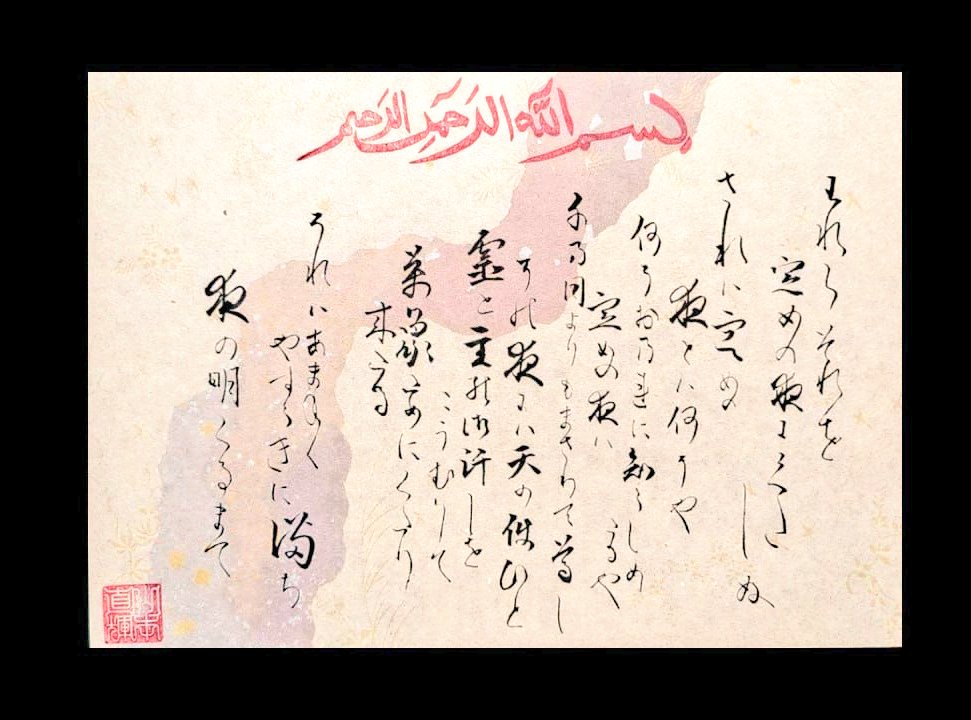 بسم الله الرحمن الرحيم
われらそれを
定めの夜にくた
しぬ
されは定めの
夜とは何そや
何そおのれに知らしめ
うるや
定めの夜は
千の月よりもまさりて尊し
その夜には天の使ひと
霊と主の御許しを
こうむりて
萬象ために くたり
来たる
それはあまねく
やすらきに満ち
夜の明くるまて
直輝